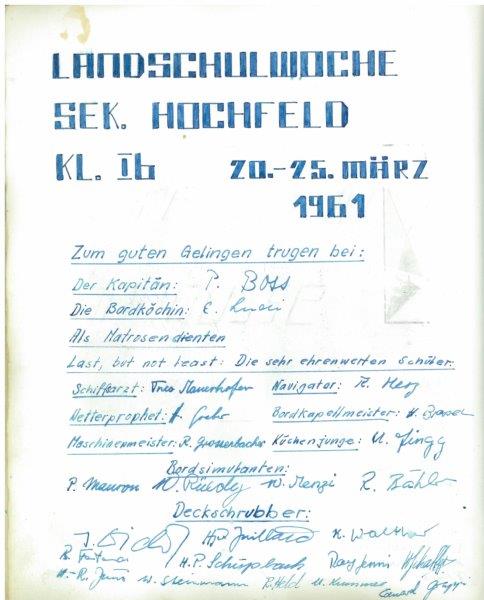 LANDSCHULWOCHE
SEK. HOCHFELD
KL. Ib 20.-25. MÄRZ
1961
Zum guten Gelingen trugen bei:
Der Kapitän: P. Boss
Die Bordköchin: E.
Als Matrosen dienten
Last, but not least: Die sehr ehrenwerten Schüler:
Schiffsarzt: Theo Mauerhofer Navigator:
Wetterprophet: Bordkapellmeister:
Maschinenmeister: R. Grossenbacher Küchenjunge: U. Zingg
Bordsimulanten:
P. Mauron W. Rüedy W. Menzi R. Bähler
Deckschrubber:
HP Juillard K. Walther
H.P. Schüpbach Ray Jenni
H.-R. Jenni W. Steinmann R. Held U. Kummer